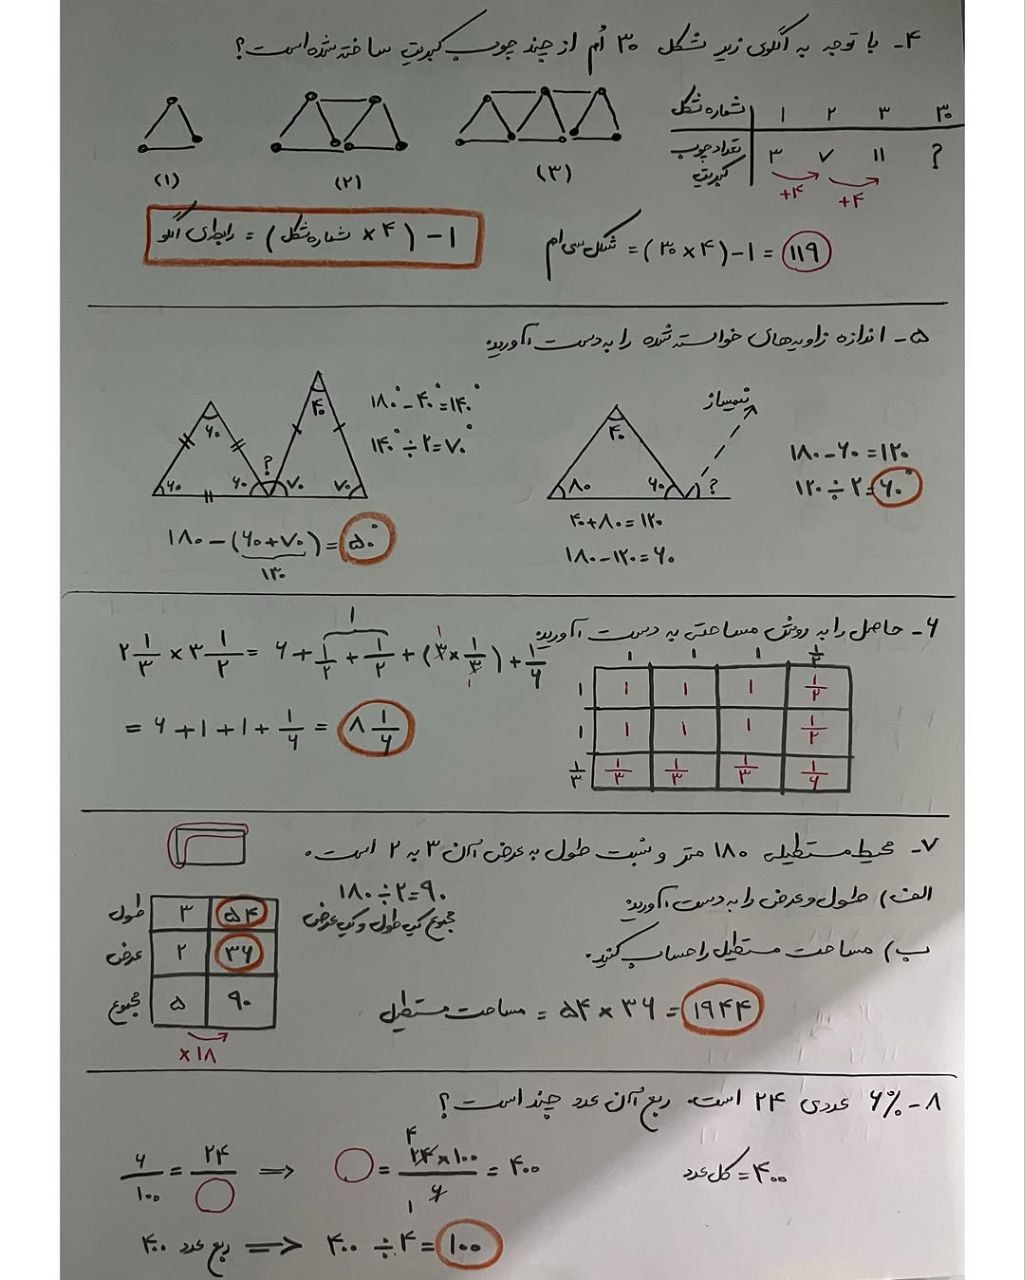 ۴- با توجه به الگوی زیر شکل ۳۰ اُم از چند چوب کبریت ساخته شده است؟
(۱) (۲) (۳)
شماره شکل ۱ ۲ ۳ ۳۰
تعداد چوب کبریت ۳ ۷ ۱۱ ?
+۴ +۴
رابطه‌ی الگو = (شماره شکل × ۴) - ۱
شکل سی ام = (۳۰ × ۴) - ۱ = ۱۱۹
۵- اندازه زاویه‌های خواسته شده را به دست آورید:
۶۰ ۶۰ ۶۰ ? ۷۰ ۷۰ ۴۰
۱۸۰° - ۴۰° = ۱۴۰°
۱۴۰° ÷ ۲ = ۷۰°
۱۸۰ - (۶۰ + ۷۰) = ۵۰°
۱۳۰
نیمساز
۴۰ ۸۰ ۶۰ ?
۴۰ + ۸۰ = ۱۲۰
۱۸۰ - ۱۲۰ = ۶۰
۱۸۰ - ۶۰ = ۱۲۰
۱۲۰ ÷ ۲ = ۶۰°
۶- حاصل را به روش مساحتی به دست آورید:
۲ ۱/۳ × ۳ ۱/۲ = ۶ + ۱/۲ + ۱/۲ + (۳ × ۱/۳) + ۱/۶
۱
= ۶ + ۱ + ۱ + ۱/۶ = ۸ ۱/۶
۱ ۱ ۱ ۱/۲
۱ ۱ ۱ ۱ ۱/۲
۱ ۱ ۱ ۱ ۱/۲
۱/۳ ۱/۳ ۱/۳ ۱/۳ ۱/۶
۷- محیط مستطیلی ۱۸۰ متر و نسبت طول به عرض آن ۳ به ۲ است.
الف) طول و عرض را به دست آورید:
ب) مساحت مستطیل را حساب کنید.
۱۸۰ ÷ ۲ = ۹۰
مجموع یک طول و یک عرض
طول ۳ ۵۴
عرض ۲ ۳۶
مجموع ۵ ۹۰
×۱۸
مساحت مستطیل = ۵۴ × ۳۶ = ۱۹۴۴
۸- ۶٪ عددی ۲۴ است. ربع آن عدد چند است؟
۶/۱۰۰ = ۲۴/○ ⇒ ○ = ۲۴ × ۱۰۰/۶ = ۴۰۰
۴
۱
کل عدد = ۴۰۰
ربع عدد ۴۰۰ ⇒ ۴۰۰ ÷ ۴ = ۱۰۰